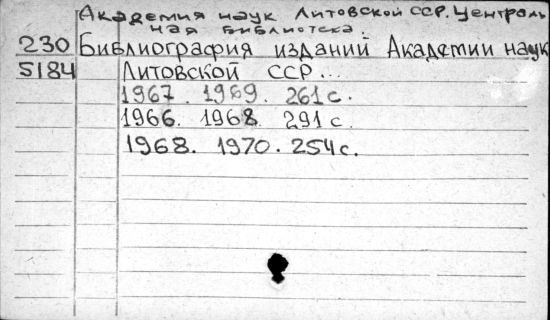 Академия наук Литовской ССР. Централь
ная библиотека.
230 Библиография изданий Академии наук
5184 Литовской ССР...
1967. 1969. 261 с.
1966. 1968. 291 с.
1968. 1970. 254 с.